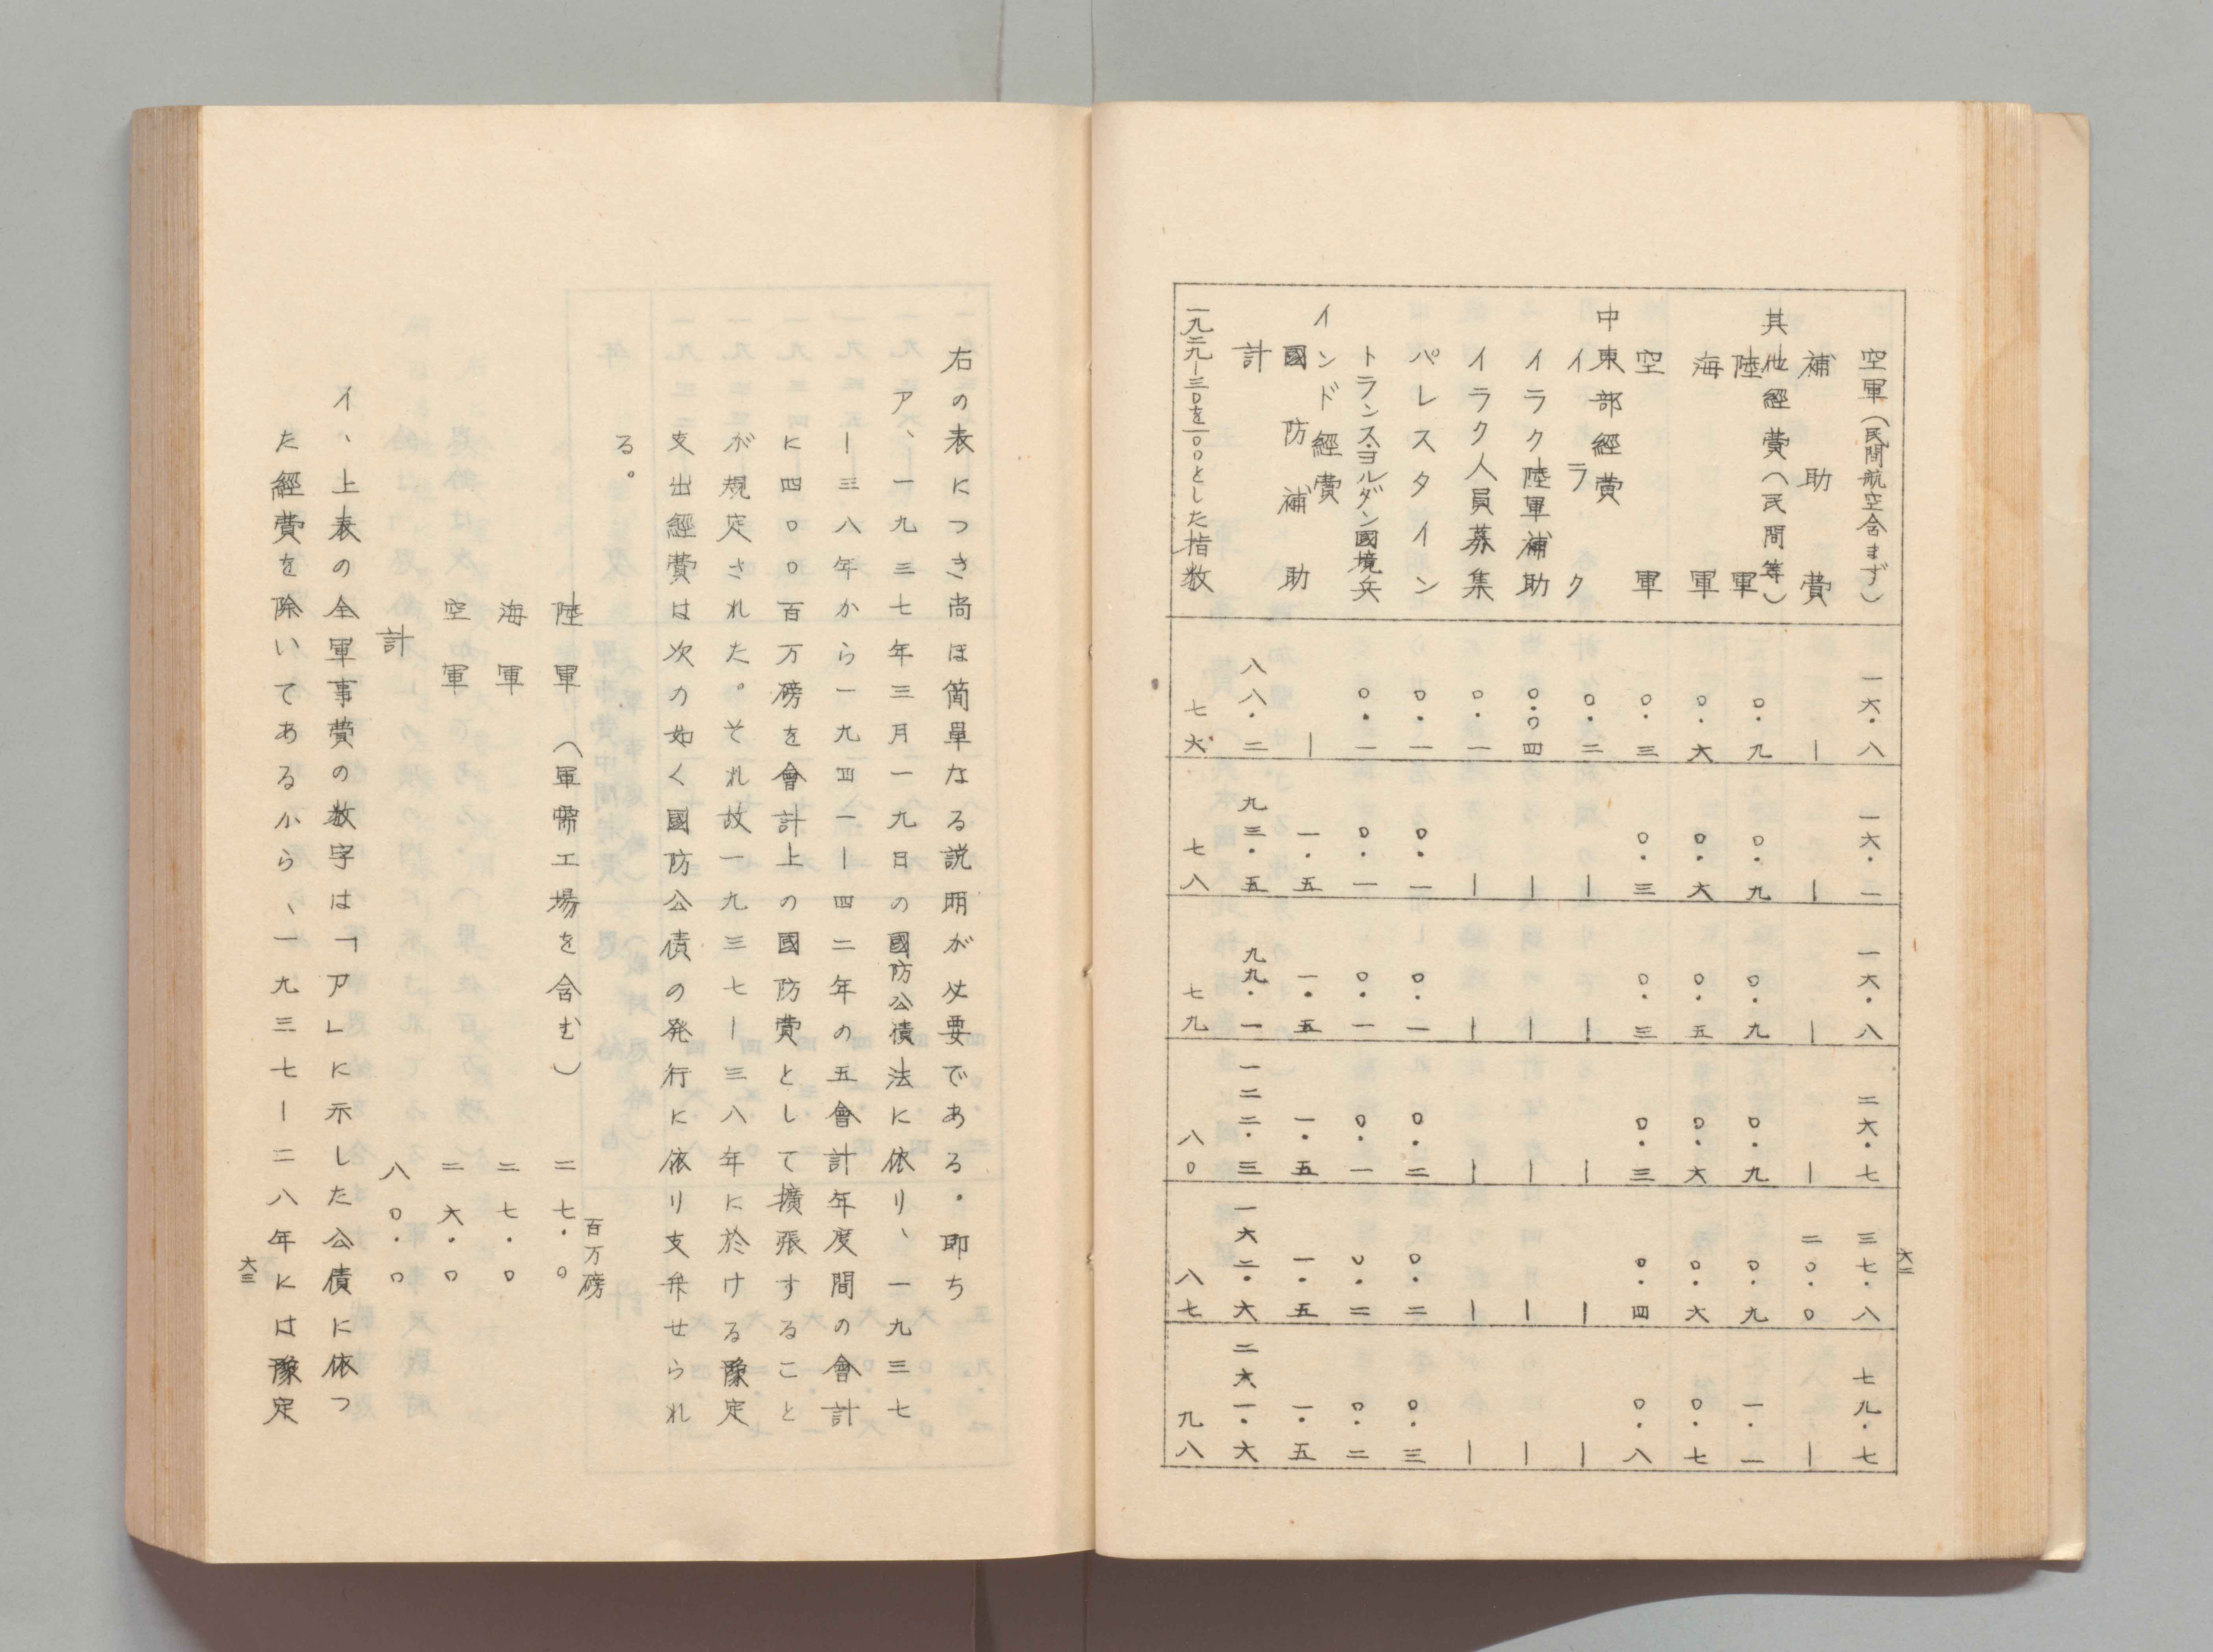 空軍(民間航空含まず) 一六・八 一六・一 一六・八 二六・七 三七・八 七九・七
補助費 ー ー ー ー 二〇・〇 ー
其他經費(民間等)
陸軍 〇・九 〇・九 〇・九 〇・九 〇・九 一・一
海軍 〇・六 〇・六 〇・五 〇・六 〇・六 〇・七
空軍 〇・三 〇・三 〇・三 〇・三 〇・四 〇・八
中東部經費
イラク 〇・二 ー ー ー ー ー
イラク陸軍補助 〇・〇四 ー ー ー ー ー
イラク人員募集 〇・一 ー ー ー ー ー
パレスタイン 〇・一 〇・一 〇・一 〇・二 〇・二 〇・三
トランス・ヨルダン國境兵 〇・一 〇・一 〇・一 〇・一 〇・二 〇・二
インド經費
國防補助 ー 一・五 一・五 一・五 一・五 一・五
計 八八・二 九三・五 九九・一 一二二・三 一六二・六 二六一・六
一九二九ー三〇を一〇〇とした指数 七六 七八 七九 八〇 八七 九八
六二
右の表につき尚ほ簡単なる説明が必要である・即ち
ア、一九三七年三月一九日の國防公債法に依リ、一九三七
ー三八年から一九四一ー四二年の五會計年度間の會計
に四〇〇百万磅を會計上の國防費として擴張すること
が規定された。それ故一九三七ー三八年に於ける豫定
支出經費は次の如く國防公債の発行に依り支弁せられ
る。
百万磅
陸軍(軍需工場を含む) 二七・〇
海軍 二七・〇
空軍 二六・〇
計 八〇・〇
イ、上表の全軍事費の数字は「ア」に示した公債に依つ
た經費を除いてあるから、一九三七ー二八年には豫定
六三